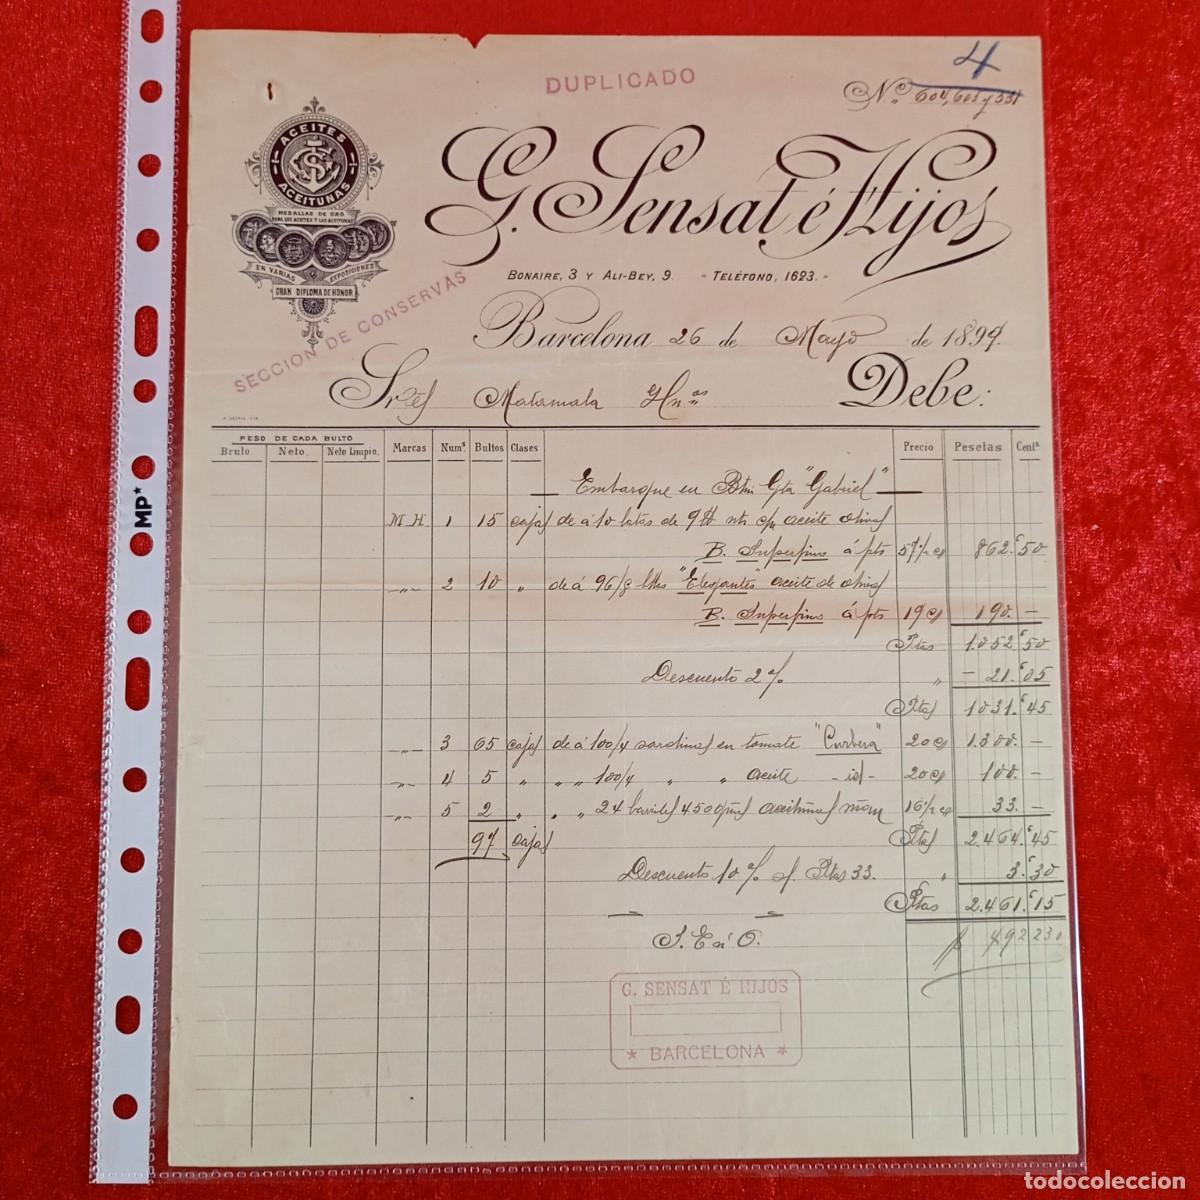 DUPLICADO
4
Nº 604, 605 y 331
ACEITES
ACEITUNAS
MEDALLAS DE ORO
PARA LOS ACEITES Y LAS ACEITUNAS
EN VARIAS EXPOSICIONES
GRAN DIPLOMA DE HONOR
G. Sensat é Hijos
BONAIRE, 3 Y ALI-BEY, 9. - TELÉFONO, 1623. -
SECCION DE CONSERVAS
Barcelona 26 de Mayo de 1899.
Sres Matamala Hnos Debe:
PESO DE CADA BULTO
Bruto Neto Neto Limpio. Marcas Nums. Bultos Clases Precio Pesetas Cents
Embarque en Gta "Gabriel"
M.H. 1 15 cajas de á 10 latas de 9 aceite olivas
B. Superfino á pts 57½ c/ 862.50
-"- 2 10 " de á 96/8 "Elegantes" aceite de olivas
B. Superfino á pts 19 c/ 190. -
Ptas 1.052.50
Descuento 2 % " - 21.05
Ptas 1031.45
-"- 3 65 cajas de á 100/4 sardinas en tomate "Curbera" 20 c/ 1.300. -
-"- 4 5 " " " 100/4 " " aceite - id - 20 c/ 100. -
-"- 5 2 " " " 24 barriles aceitunas 16½ c/ 33. -
97 cajas Ptas 2.464.45
Descuento 10 % s/. Ptas 33. " 3.30
Ptas 2.461.15
S. E. ú O.
$ 492230
G. SENSAT É HIJOS
* BARCELONA *
MP*
todocoleccion